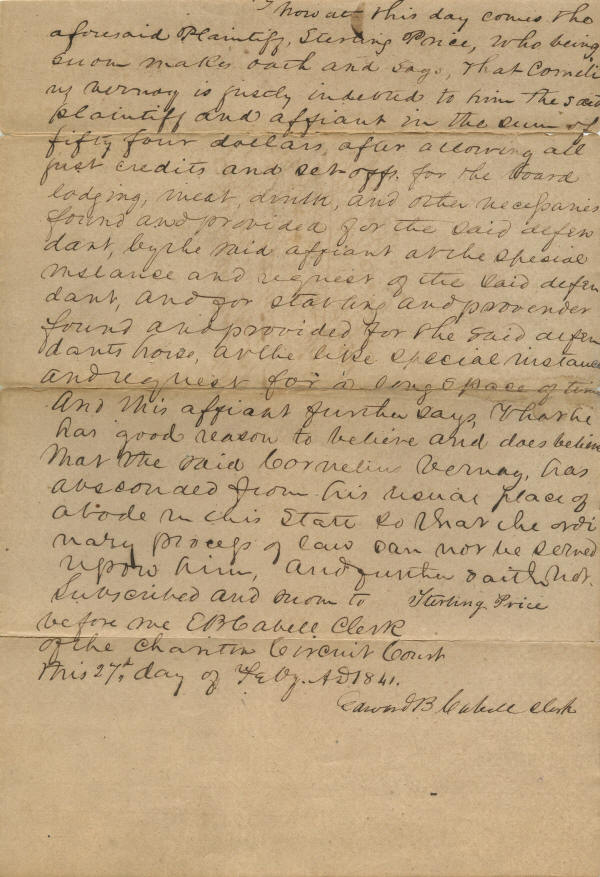 Now at this day comes the
aforesaid Plaintiff, Sterling Price, who being
sworn makes oath and says, that Corneli
us Vernay is justly indebted to him the said
plaintiff and affiant in the sum of
fifty four dollars, after allowing all
just credits and set-offs. for the board
lodging, meat, drink, and other necessaries
found and provided for the said defen
dant, by the said affiant at the special
instance and request of the said defen
dant, and for stabling and provender
found and provided for the said defen
dants horse, at the like special instance
and request for a long space of time
And this affiant further says, that he
has good reason to believe and does believe
that the said Cornelius Vernay, has
absconded from his usual place of
abode in this State so that the ordi
nary process of law can not be served
upon him, and further saith not.
Subscribed and sworn to Sterling Price
before me E B Cabell Clerk
of the Chariton Circuit Court
this 27th day of Feby. AD 1841.
Edward B Cabell Clerk